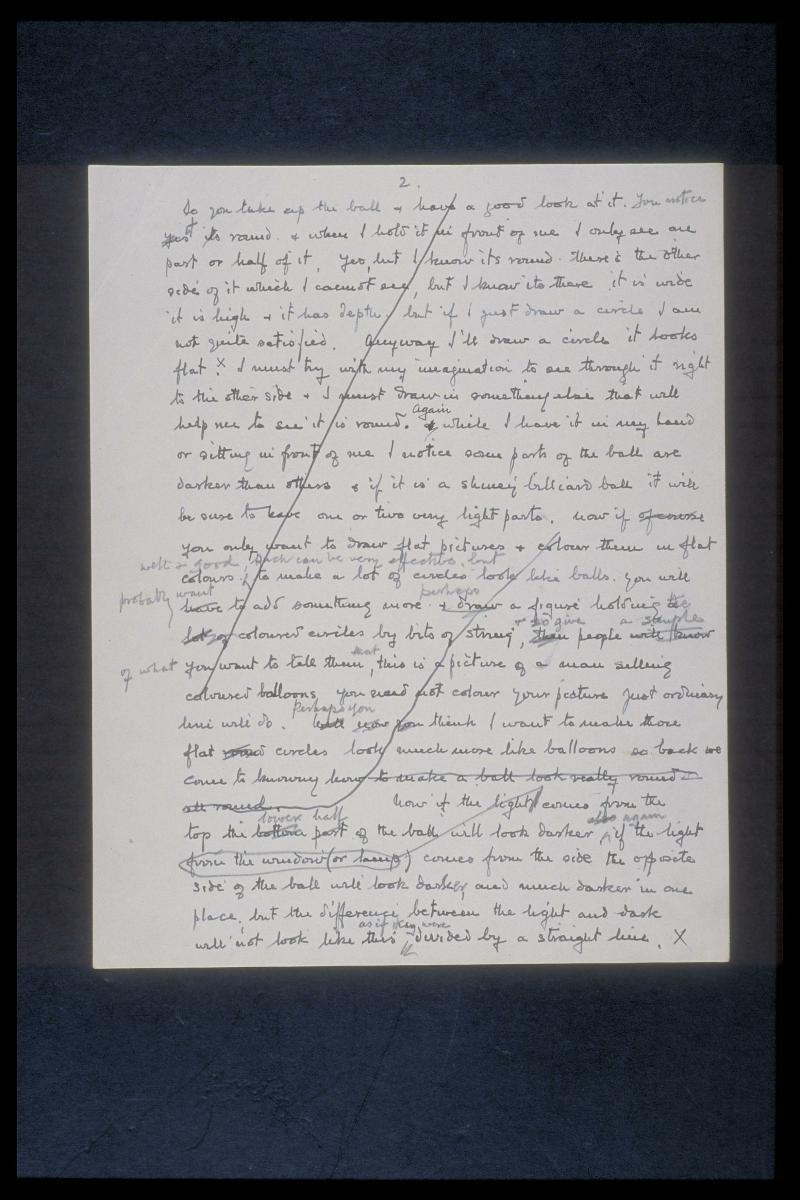 2.
So you take up the ball & have a good look at it. You notice
yes it is round. & when I hold it in front of me I only see one
part or half of it, yes, but I know its round. there's the other
side of it which I cannot see, but I know its there it is wide
it is high & it has depth. but if I just draw a circle I am
not quite satisfied. Anyway I'll draw a circle it looks
flat. X I must try with my imagination to see through it right
to the other side & I must draw in something else that will
help me to see it is round. Again
& while I have it in my hand
or sitting in front of me I notice some parts of the ball are
darker than others & if it is a shiney billiard ball it will
be sure to have one or two very light parts. now if of course
you only want to draw flat pictures & colour them in flat
well & good, such can be very effective, but
colours; to make a lot of circles look like balls. you will
probably want perhaps
have to add something more & draw a figure holding the
& so give a simple
lot of coloured circles by bits of string, then people will know
of what you want to tell them, that this is a picture of a man selling
coloured balloons, you need not colour your picture just ordinary
Perhaps you
line will do. Well now you think I want to make those
flat round circles look much more like balloons so back we
come to knowing how to make a ball look really round –
all round. Now if the light comes from the
lower half also again
top the bottom part of the ball will look darker, if the light
from the window (or lamp) comes from the side the opposite
side of the ball will look darker, and much darker in one
place, but the difference between the light and dark
as if they were
will not look like this divided by a straight line. X